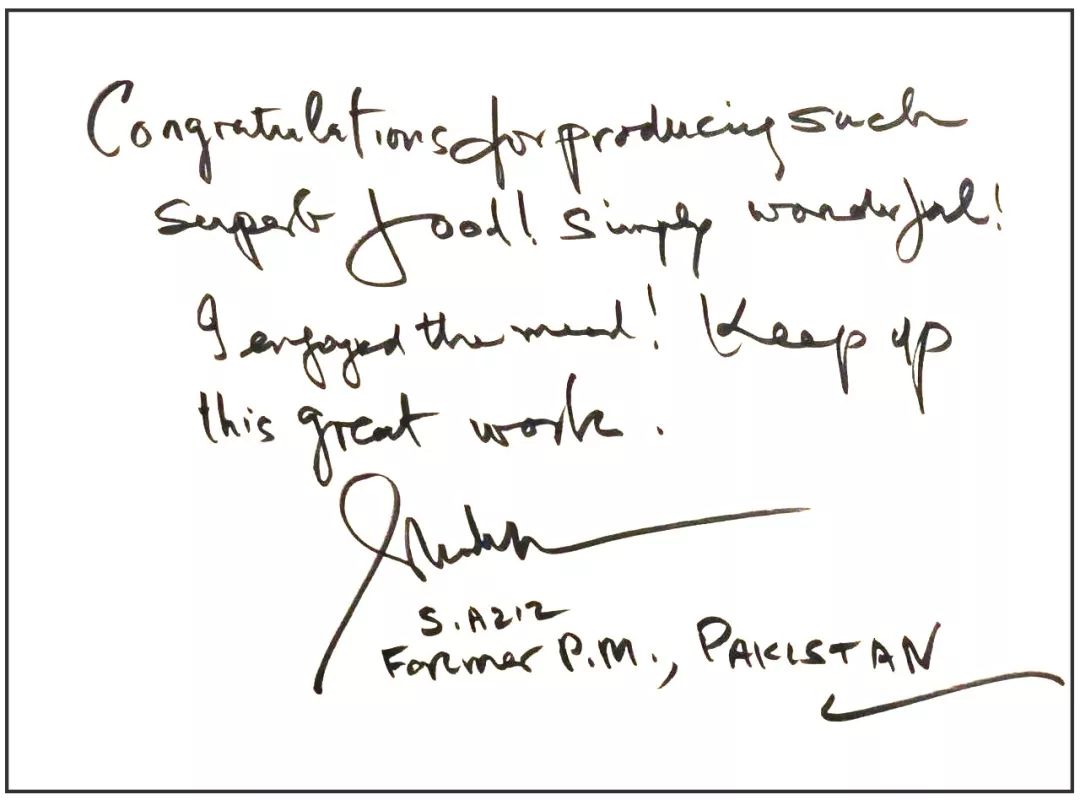 Congratulations for producing such
superb food! Simply wonderful!
I enjoyed the meal! Keep up
this great work.
S. AZIZ
Former P.M., PAKISTAN